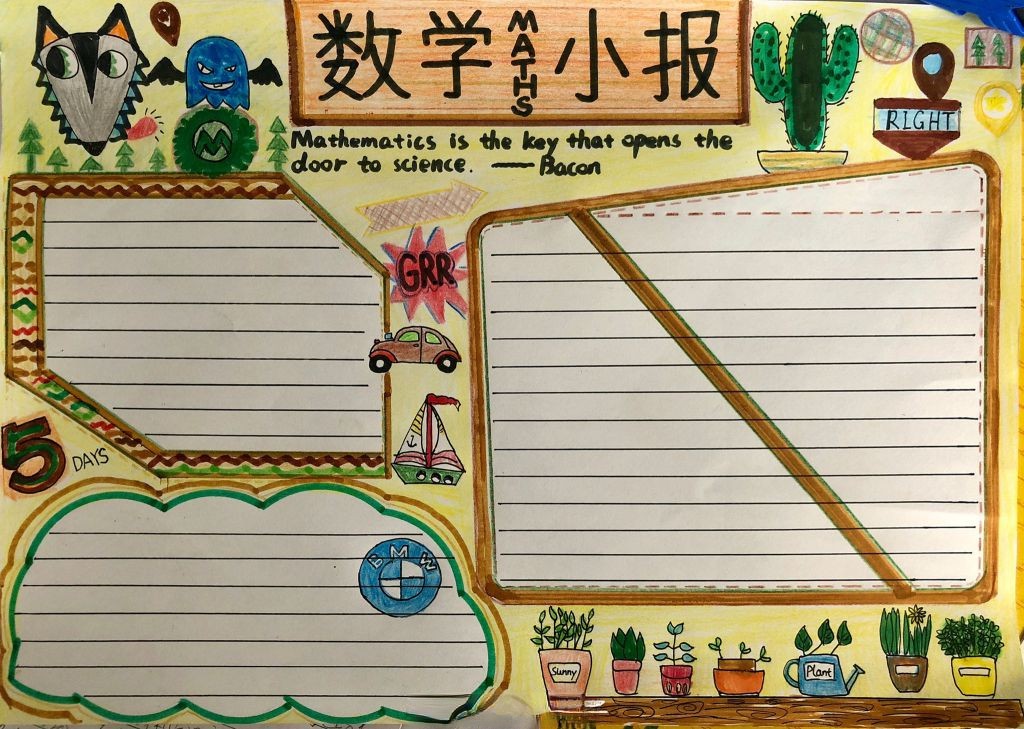 数学 MATHS 小报
Mathematics is the key that opens the
door to science. —— Bacon
M
RIGHT
GRR
5 DAYS
BMW
Sunny
Plant